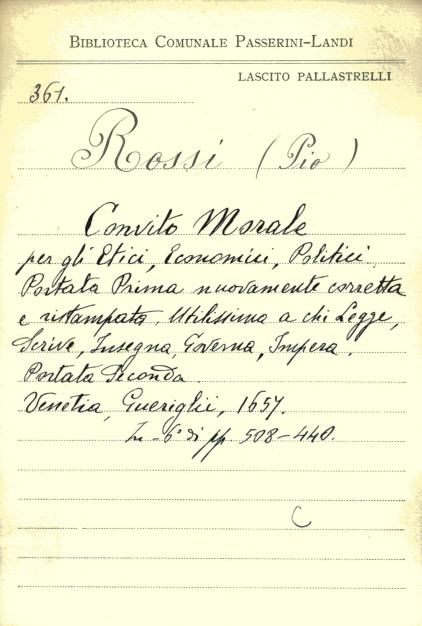 BIBLIOTECA COMUNALE PASSERINI-LANDI
LASCITO PALLASTRELLI
361.
Rossi (Pio)
Convito Morale
per gli Etici, Economici, Politici.
Portata Prima nuovamente corretta
e ristampata. Utilissima a chi Legge,
Scrive, Insegna, Governa, Impera.
Portata Seconda
Venetia, Guerigli, 1657.
In-6° di pp. 508-440.
C